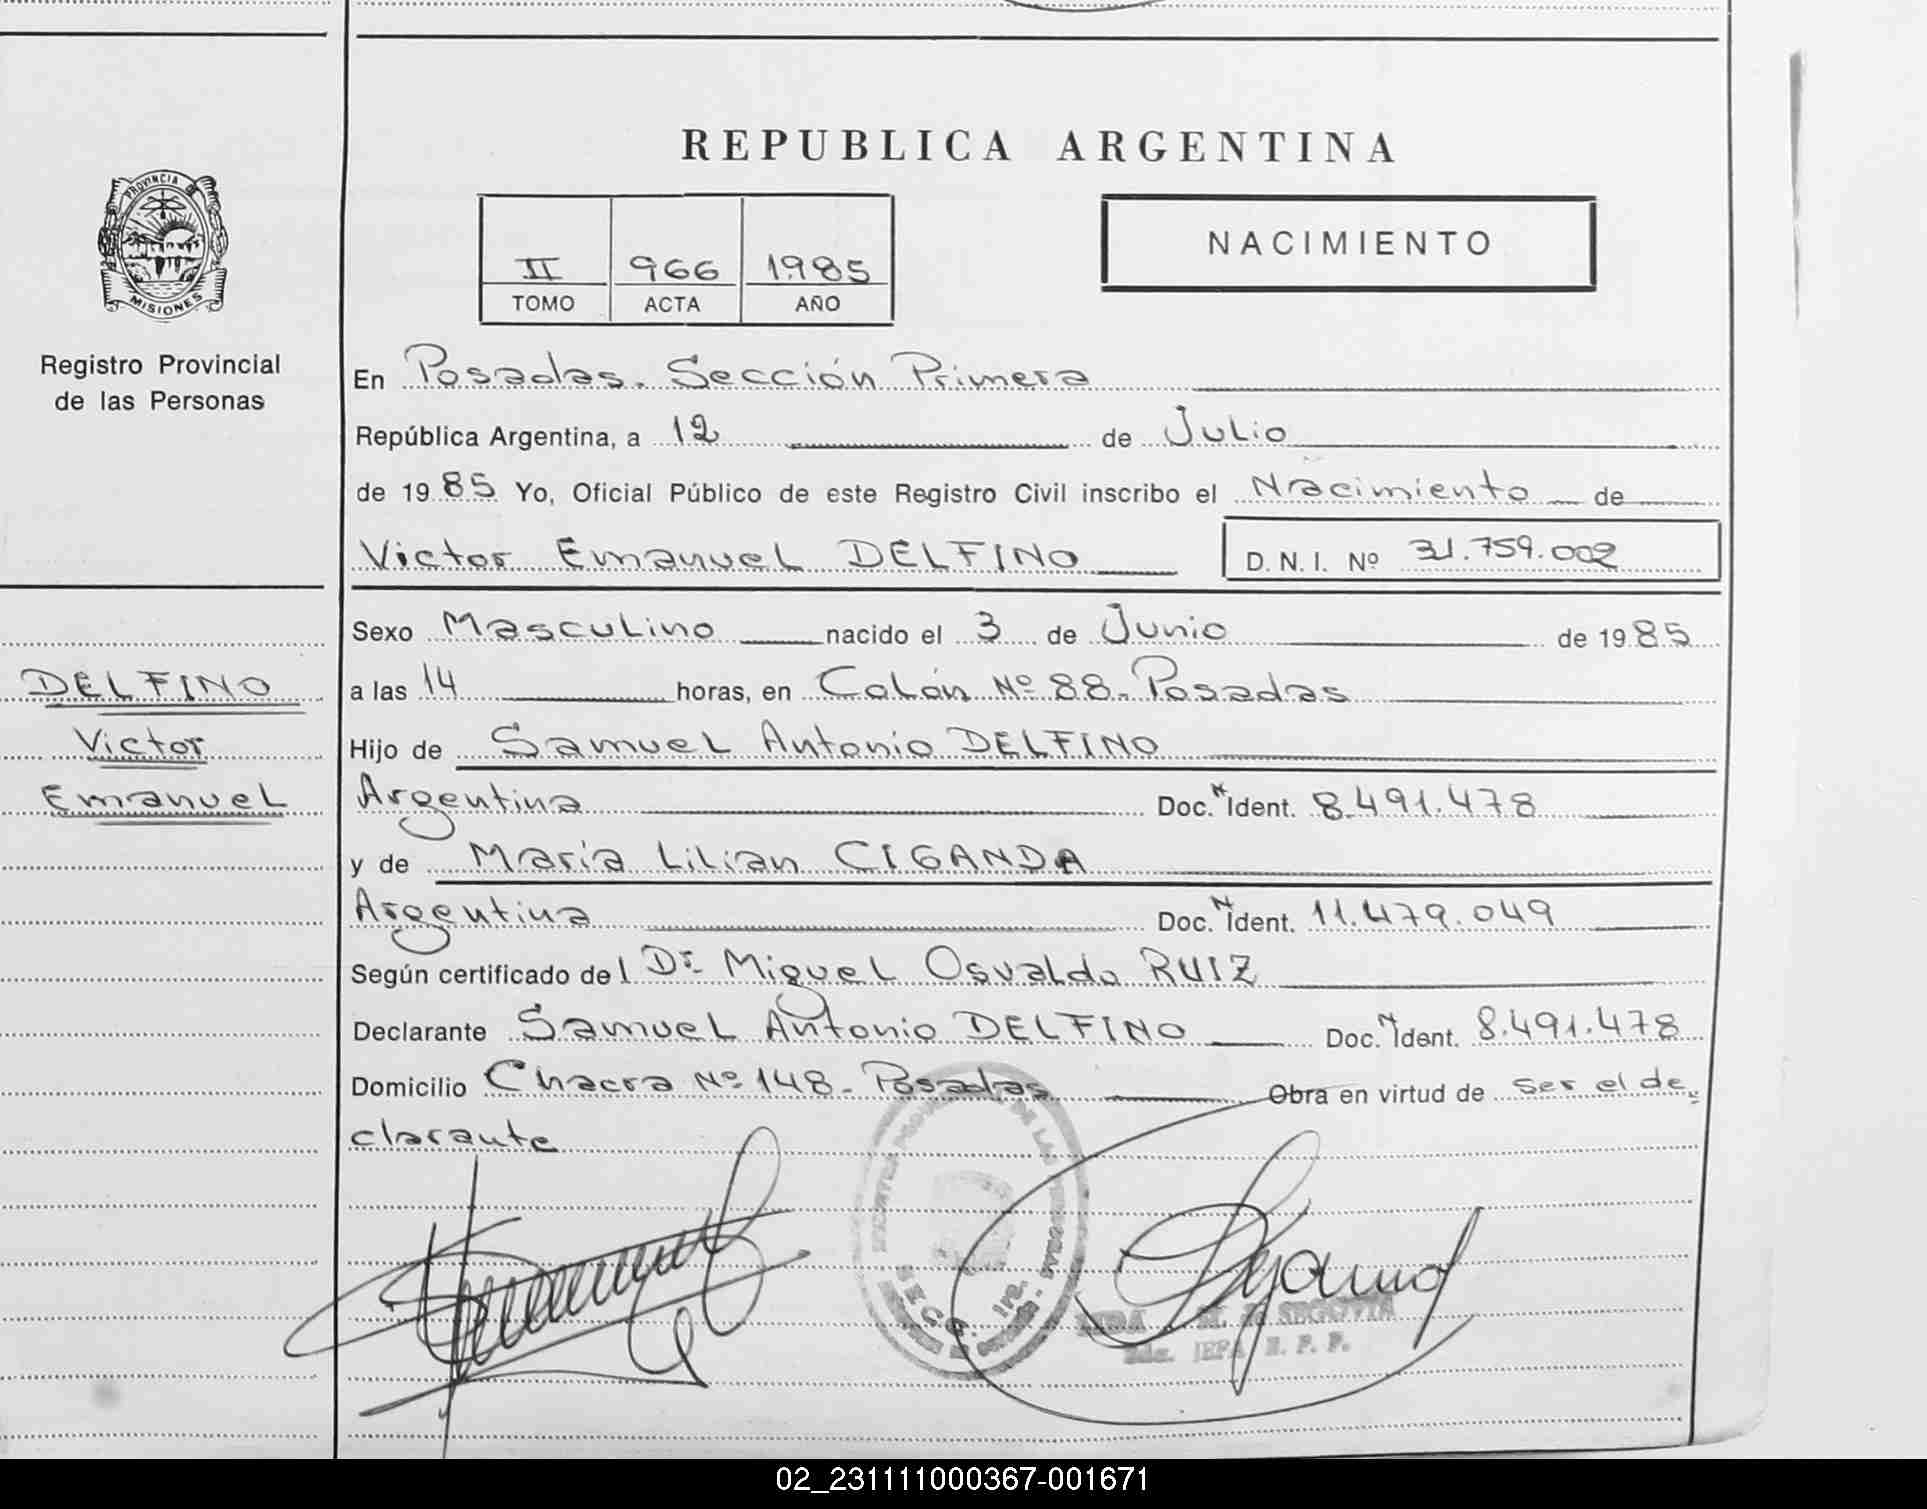 REPUBLICA ARGENTINA
PROVINCIA DE
MISIONES
Registro Provincial
de las Personas
II 966 1985
TOMO ACTA AÑO
NACIMIENTO
En Posadas. Sección Primera
República Argentina, a 12 de Julio
de 1985 Yo, Oficial Público de este Registro Civil inscribo el Nacimiento de
Victor Emanuel DELFINO D.N.I. Nº 31.759.002
Sexo Masculino nacido el 3 de Junio de 1985
DELFINO
Victor
Emanuel
a las 14 horas, en Colón Nº 88- Posadas
Hijo de Samuel Antonio DELFINO
Argentina Doc. N Ident. 8.491.478
y de María Lilian CIGANDA
Argentina Doc. N Ident. 11.479.049
Según certificado del Dr. Miguel Osvaldo RUIZ
Declarante Samuel Antonio DELFINO Doc. N Ident. 8.491.478
Domicilio Chacra Nº 148- Posadas Obra en virtud de ser el de
clarante
DE LAS PERSONAS
SECC. 1ra.
M. de SEGOVIA
R. P. P.
02_231111000367-001671